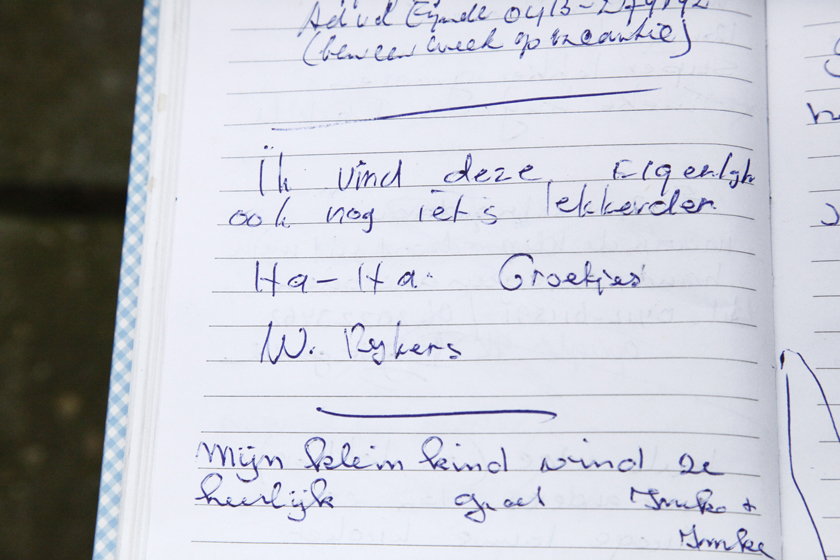 Ad vd Eynde 0413-
(ben een week op vacantie)
Ik vind deze Eigenlyk
ook nog iets lekkerder.
Ha-Ha. Groetjes
W. Rykers
Mijn klein kind vind ze
heerlijk groet Ymke +
Ymke